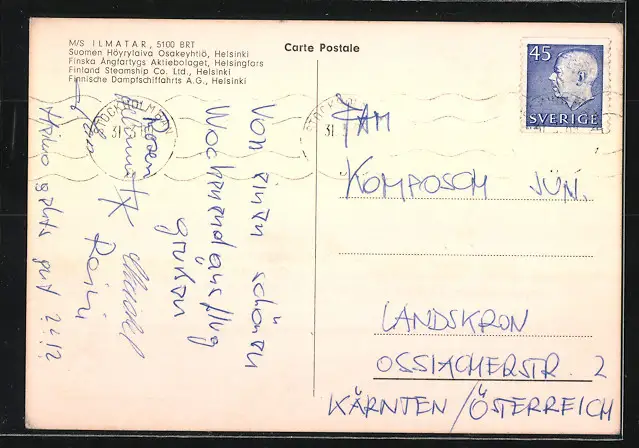 M/S ILMATAR, 5100 BRT
Suomen Höyrylaiva Osakeyhtiö, Helsinki
Finska Ångfartygs Aktiebolaget, Helsingfors
Finland Steamship Co. Ltd., Helsinki
Finnische Dampfschiffahrts A.G., Helsinki
Carte Postale
45
SVERIGE
STOCKHOLM
31
Von einem schönen
Wochenendausflug
grüßen
Reini
geht's gut
FAM
KOMPOSCH JÜN.
LANDSKRON
OSSIACHERSTR. 2
KÄRNTEN/ÖSTERREICH